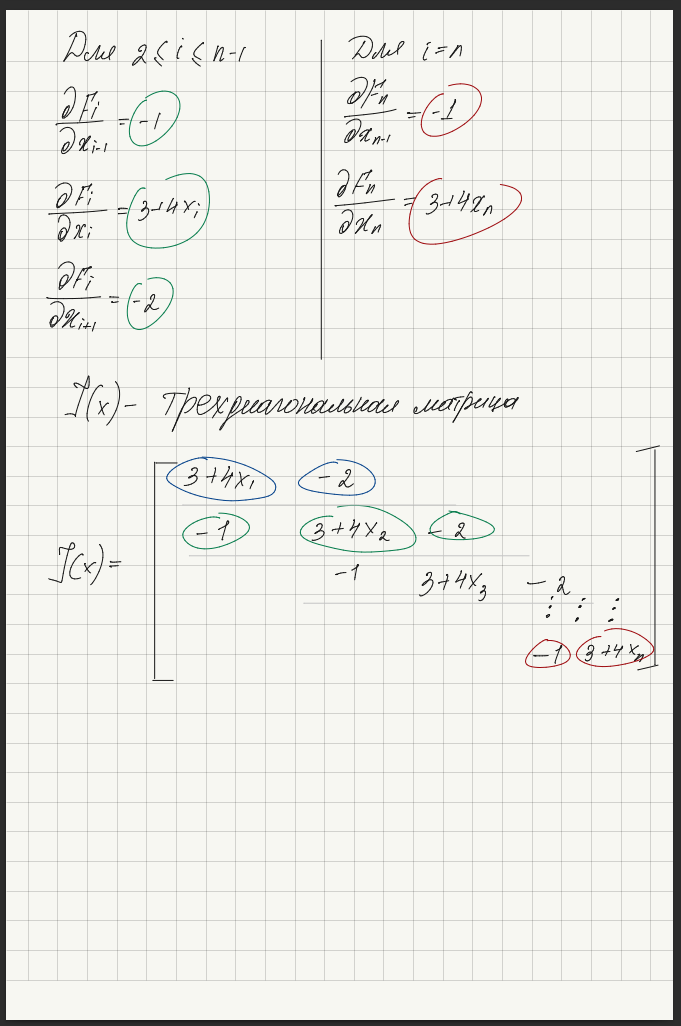 Для 2 ≤ i ≤ n-1
∂Fi/∂xi-1 = -1
∂Fi/∂xi = 3+4xi
∂Fi/∂xi+1 = -2
Для i=n
∂Fn/∂xn-1 = -1
∂Fn/∂xn = 3+4xn
J(x) - трехдиагональная матрица
J(x) =
3+4x1 -2
-1 3+4x2 -2
-1 3+4x3 -2
⋮ ⋮ ⋮
-1 3+4xn